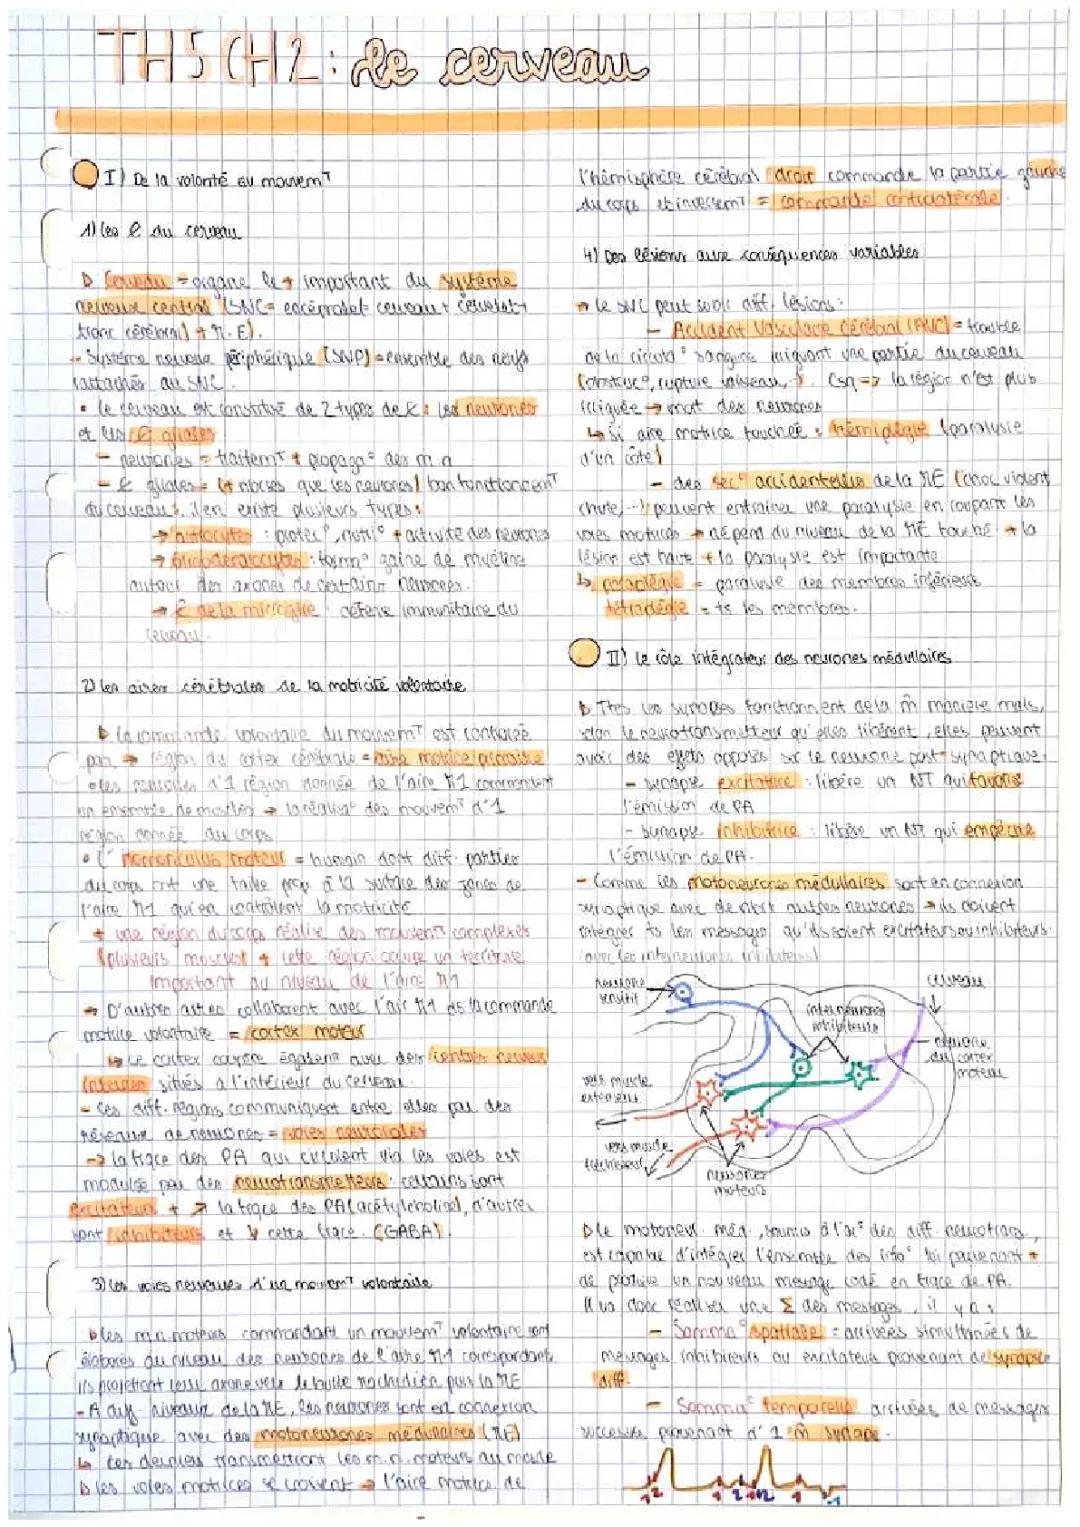 TH5 CH2 : le cerveau
I) De la volonté au mouvemT
1) les ₵ du cerveau
Cerveau = organe le + important du système
nerveux central (SNC = encéphale (= cerveau + cervelet +
tronc cérébral) + M.E).
- Système nerveux périphérique (SNP) = ensemble des nerfs
rattachés au SNC.
• le cerveau est constitué de 2 types de ₵ : les neurones
et les ₵ gliales
- neurones = traitemT + propaga° des m.n
- ₵ gliales = (+ nbrses que les neurones) bon fonctionnemT
du cerveau. Il en existe plusieurs types :
→ astrocytes : protec°, nutri° + activité des neurones
→ oligodendrocytes : forma° gaine de myéline
autour des axones de certains neurones.
→ ₵ de la microglie : défense immunitaire du
cerveau.
2) les aires cérébrales de la motricité volontaire
la commande volontaire du mouvemT est contrôlée
par → région du cortex cérébrale = aire motrice primaire
• les neurones d'1 région donnée de l'aire M1 commandent
un ensemble de muscles → la réalisa° des mouvemT d'1
région donnée du corps
• L'homonculus moteur = humain dont diff. parties
du corps ont une taille prop à la surface des zones de
l'aire M1 qui en contrôlent la motricité
+ une région du corps réalise des mouvemTs complexes
(plusieurs muscles) + cette région occupe un territoire
important au niveau de l'aire M1
→ D'autres aires collaborent avec l'air M1 ds la commande
motrice volontaire = cortex moteur
↳ ce cortex coopère égalemT avec des centres nerveux
situés à l'intérieur du cerveau.
- Ces diff. régions communiquent entre elles par des
réseaux de neurones = voies neuronales
→ la fréqce des PA qui circulent via les voies est
modulée par des neurotransmetteurs : certains sont
excitateurs + ↗ la fréqce des PA (acétylcholine), d'autres
sont inhibiteurs et ↘ cette fréqce. (GABA).
3) les voies nerveuses d'un mouvemT volontaire
les m.n. moteurs commandant un mouvemT volontaire sont
élaborés au niveau des neurones de l'aire M1 correspondant.
Ils projettent leurs axones vers le bulbe rachidien puis la ME
- A diff. niveaux de la ME, les neurones sont en connexion
synaptique avec des motoneurones médullaires (ME)
↳ ces derniers transmettront les m.n. moteurs au muscle
les voies motrices se croisent → l'aire motrice de
l'hémisphère cérébral droit commande la partie gauche
du corps et inversemT = commande controlatérale.
4) Des lésions aux conséquences variables
→ le SNC peut subir diff. lésions :
- Accident Vasculaire Cérébral (AVC) = trouble
de la circula° sanguine irriguant une partie du cerveau
(obstruc°, rupture vaisseau, ...). Csq => la région n'est plus
irriguée → mort des neurones
↳ si aire motrice touchée : hémiplégie (paralysie
d'un côté)
- des sec° accidentelles de la ME (choc violent,
chute, ...) peuvent entrainer une paralysie en coupant les
voies motrices → dépend du niveau de la ME touché → + la
lésion est haute + la paralysie est importante
↳ paraplégie = paralysie des membres inférieurs
tétraplégie = ts les membres.
II) le rôle intégrateur des neurones médullaires
Ttes les synapses fonctionnent de la m̂ manière mais,
selon le neurotransmetteur qu'elles libèrent, elles peuvent
avoir des effets opposés sur le neurone post-synaptique.
- synapse excitatrice : libère un NT qui favorise
l'émission de PA
- synapse inhibitrice : libère un NT qui empêche
l'émission de PA.
- Comme les motoneurones médullaires sont en connexion
synaptique avec de nbrx autres neurones → ils doivent
intégrer ts les messages qu'ils soient excitateurs ou inhibiteurs.
(avec les interneurones inhibiteurs)
neurone
sensitif
interneurones
inhibiteurs
cerveau
neurone
du cortex
moteur
vers muscle
extenseur
vers muscle
fléchisseur
neurones
moteurs
le motoneur. méd., soumis à l'ac° des diff. neurotrans,
est capable d'intégrer l'ensemble des info° lui parvenant +
de produire un nouveau message codé en fréqce de PA.
Il va donc réaliser une Σ des messages, il y a :
- Somma° spatiale : arrivées simultanées de
messages inhibiteurs ou excitateurs provenant de synapse
diff.
- Somma° temporelle : arrivées de messages
successifs provenant d'1 m̂ synapse.